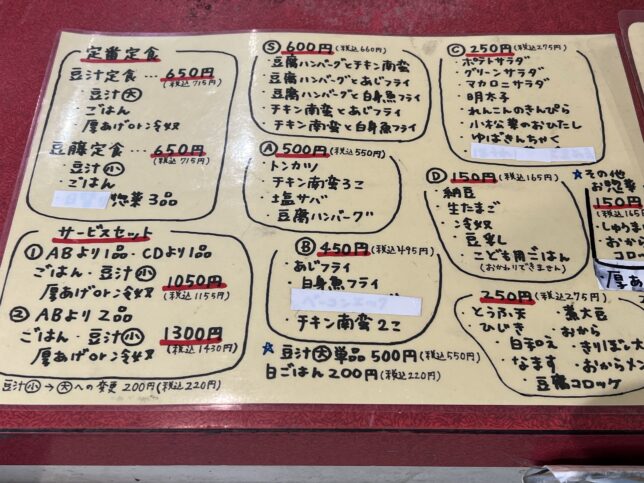 定番定食
豆汁定食…650円
(税込715円)
・豆汁大
・ごはん
・厚あげor冷奴
豆藤定食…650円
(税込715円)
・豆汁小
・ごはん
惣菜3品
サービスセット
① ABより1品・CDより1品
ごはん・豆汁小
厚あげor冷奴
1050円
(税込1155円)
② ABより2品
ごはん・豆汁小
厚あげor冷奴
1300円
(税込1430円)
豆汁小→大への変更 200円(税込220円)
Ⓢ 600円(税込660円)
・豆腐ハンバーグとチキン南蛮
・豆腐ハンバーグとあじフライ
・豆腐ハンバーグと白身魚フライ
・チキン南蛮とあじフライ
・チキン南蛮と白身魚フライ
Ⓐ 500円(税込550円)
・トンカツ
・チキン南蛮3コ
・塩サバ
・豆腐ハンバーグ
Ⓑ 450円(税込495円)
・あじフライ
・白身魚フライ
ベーコンエッグ
チキン南蛮2コ
☆豆汁大単品500円(税込550円)
白ごはん200円(税込220円)
Ⓒ 250円(税込275円)
・ポテトサラダ
・グリーンサラダ
・マカロニサラダ
・明太子
・れんこんのきんぴら
・小松菜のおひたし
・ゆばきんちゃく
Ⓓ 150円(税込165円)
・納豆
・生たまご
・冷奴
・豆乳
・こども用ごはん
(おかわりできません)
★その他
お惣菜
150円
(税込165
・しゅうま
・おから
・コロッ
・厚あ
250円(税込275円)
・とうふ天
・ひじき
・白和え
・なます
・豆腐コロッケ
・蒸大豆
・おから
・きりぼし大
・おからメン